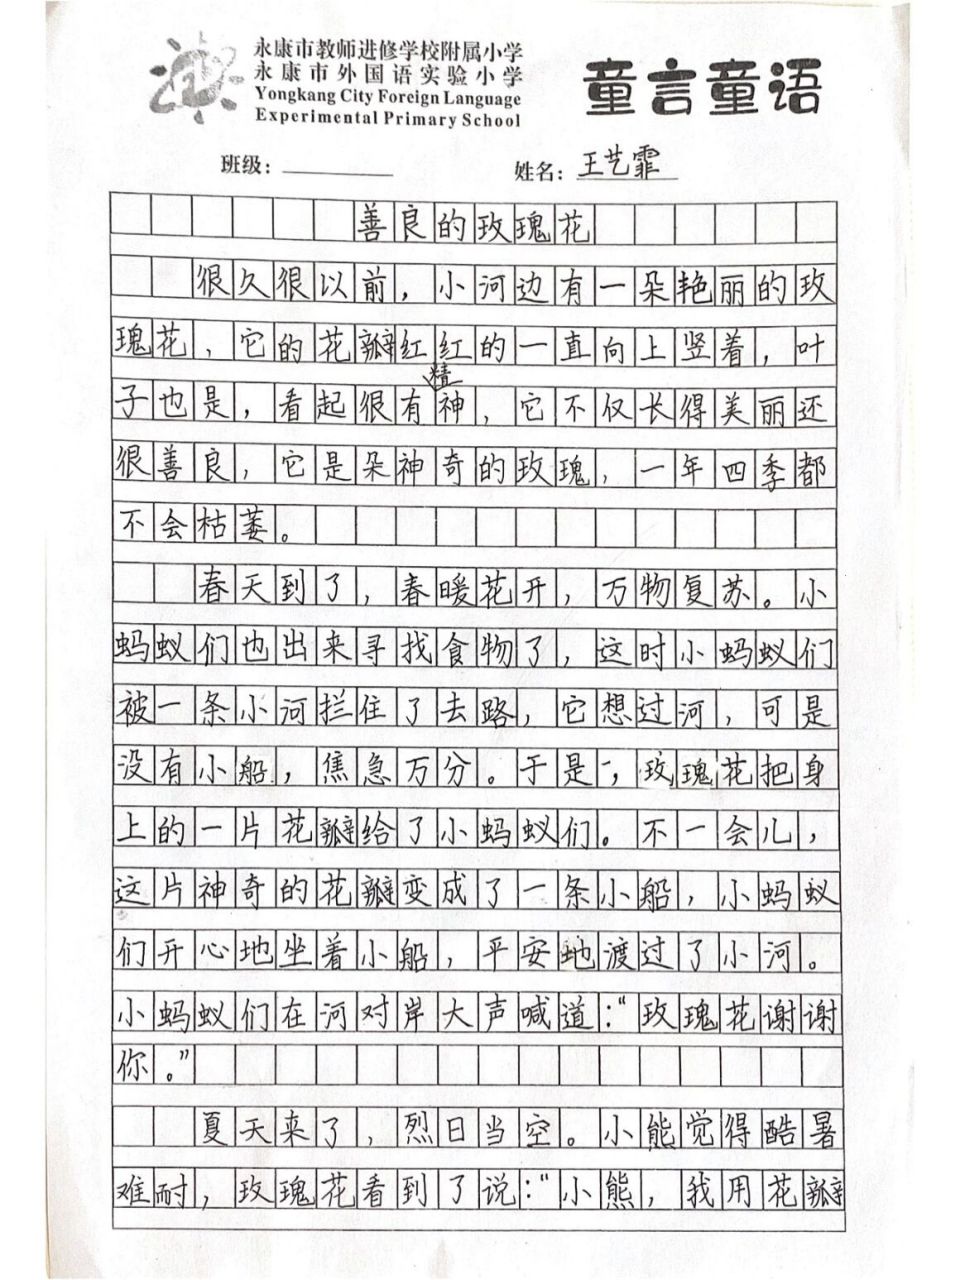 永康市教师进修学校附属小学
永康市外国语实验小学
Yongkang City Foreign Language
Experimental Primary School
童言童语
班级：
姓名：王艺霏
善良的玫瑰花
很久很以前，小河边有一朵艳丽的玫
瑰花、它的花瓣红红的一直向上竖着，叶
子也是，看起很有精神、它不仅长得美丽还
很善良，它是朵神奇的玫瑰，一年四季都
不会枯萎。
春天到了，春暖花开，万物复苏。小
蚂蚁们也出来寻找食物了，这时小蚂蚁们
被一条小河拦住了去路，它想过河，可是
没有小船，焦急万分。于是，玫瑰花把身
上的一片花瓣给了小蚂蚁们。不一会儿，
这片神奇的花瓣变成了一条小船，小蚂蚁
们开心地坐着小船，平安地渡过了小河。
小蚂蚁们在河对岸大声喊道：“玫瑰花谢谢
你。”
夏天来了，烈日当空。小能觉得酷暑
难耐，玫瑰花看到了说：“小熊，我用花瓣